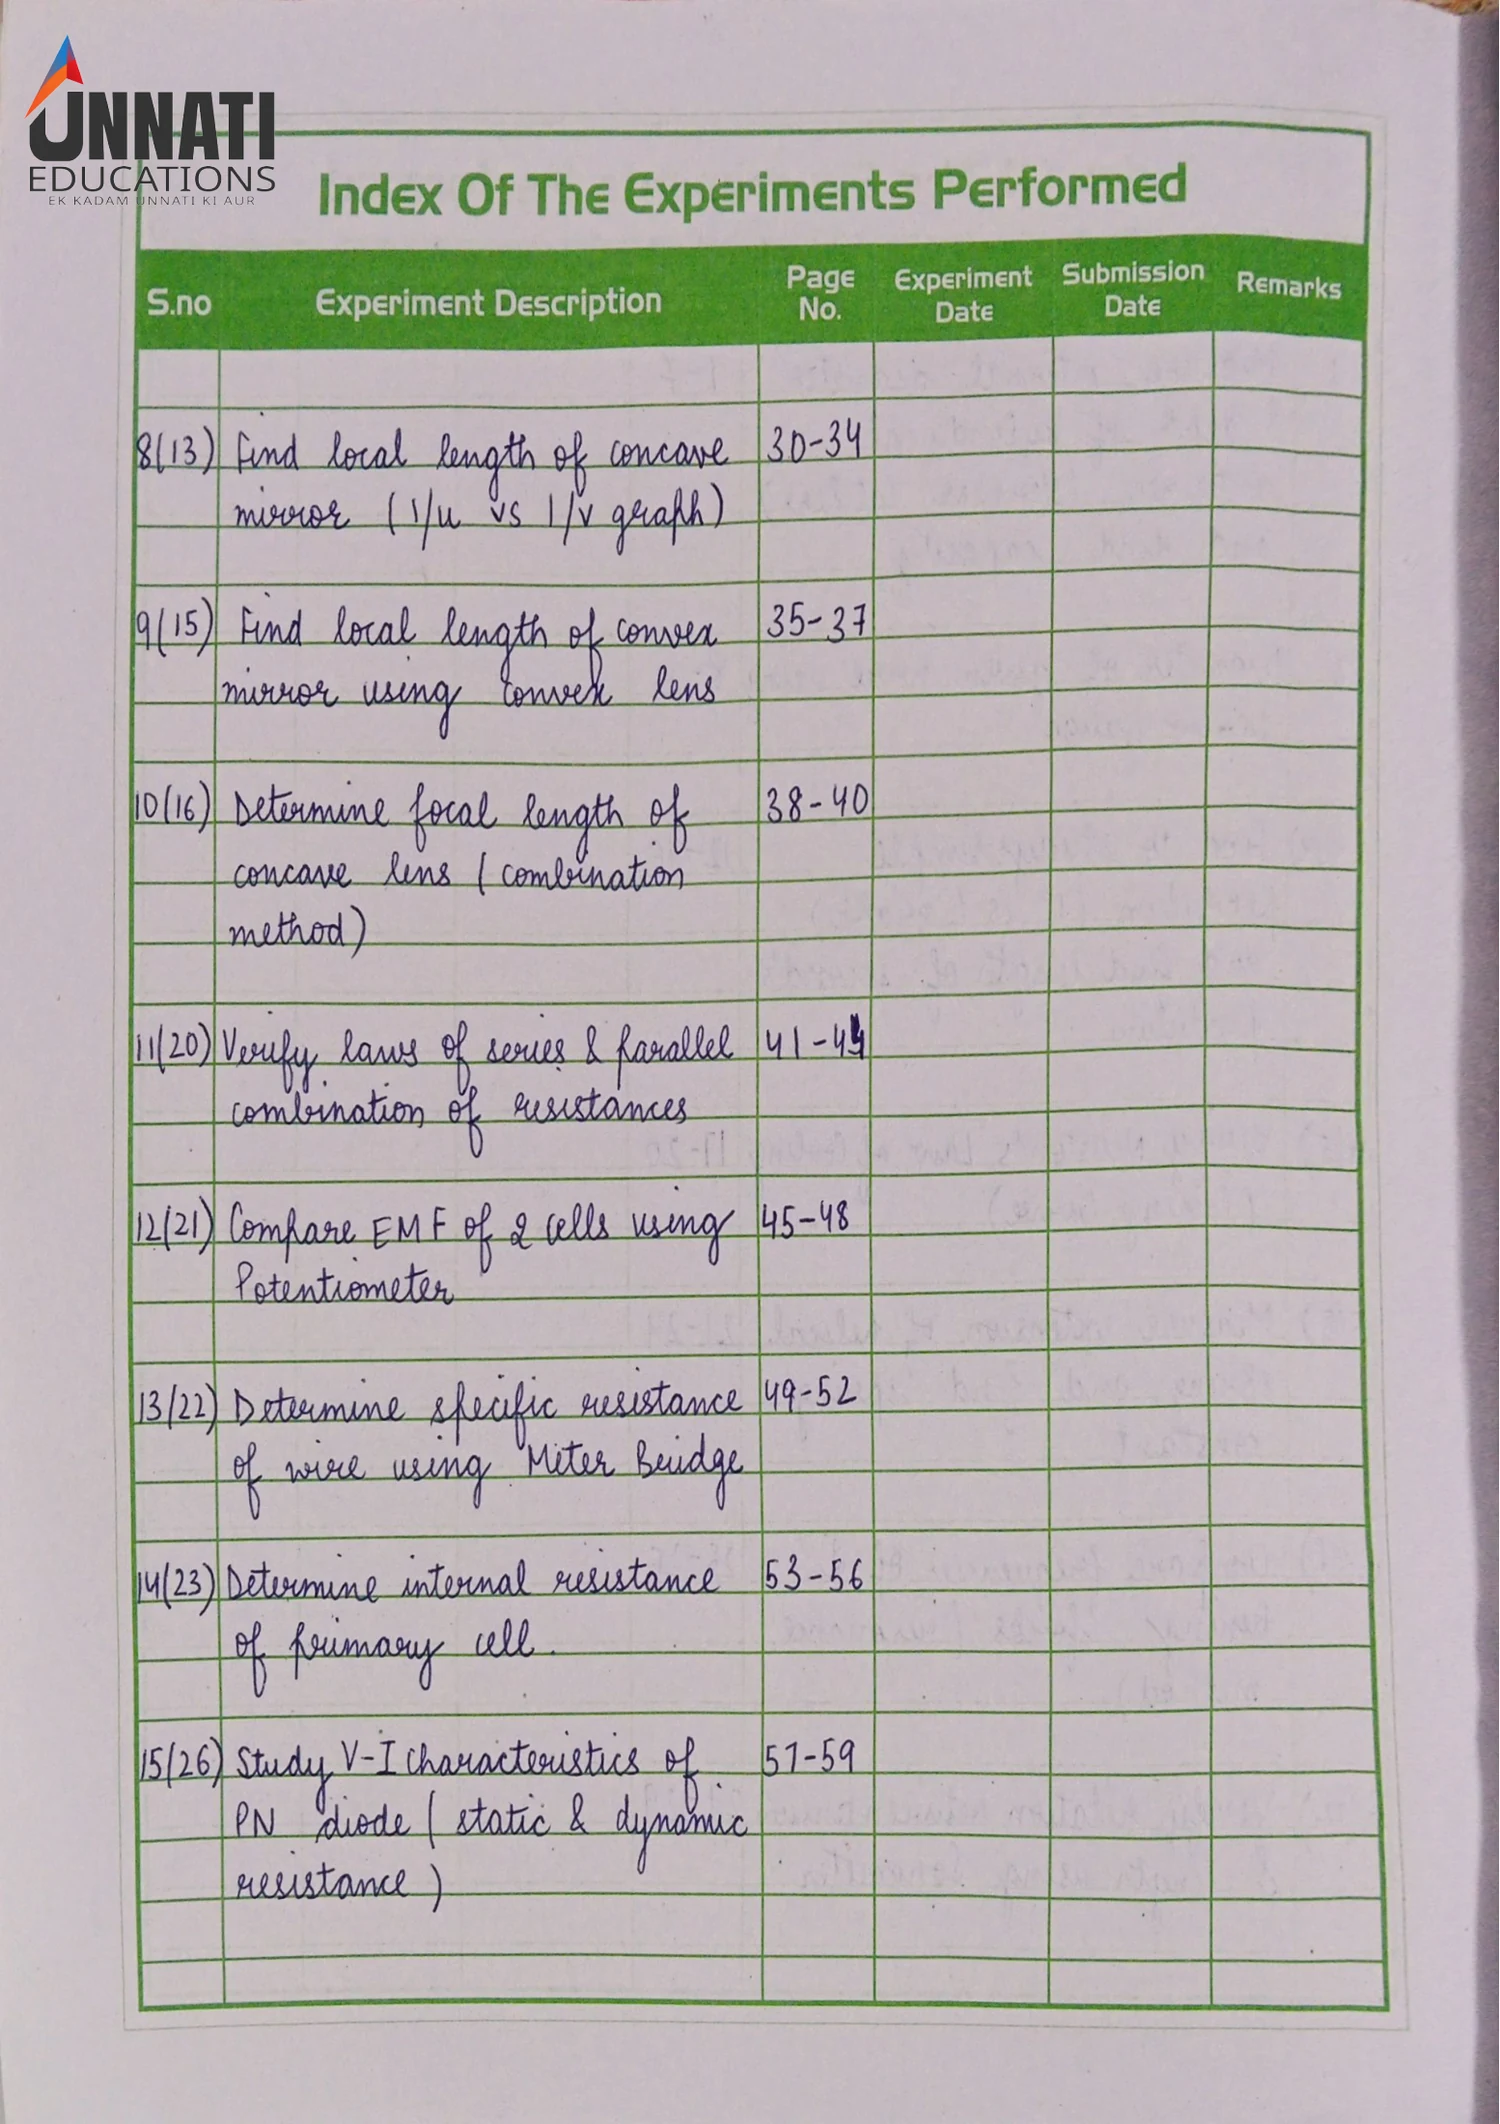 UNNATI
EDUCATIONS
EK KADAM UNNATI KI AUR
Index Of The Experiments Performed
S.no Experiment Description Page No. Experiment Date Submission Date Remarks
8(13) Find local length of concave 30-34
mirror (1/u vs 1/v graph)
9(15) Find local length of convex 35-37
mirror using convex lens
10(16) Determine focal length of 38-40
concave lens (combination
method)
11(20) Verify laws of series & parallel 41-44
combination of resistances
12(21) Compare EMF of 2 cells using 45-48
Potentiometer
13(22) Determine specific resistance 49-52
of wire using Meter Bridge
14(23) Determine internal resistance 53-56
of primary cell.
15(26) Study V-I characteristics of 57-59
PN diode (static & dynamic
resistance)